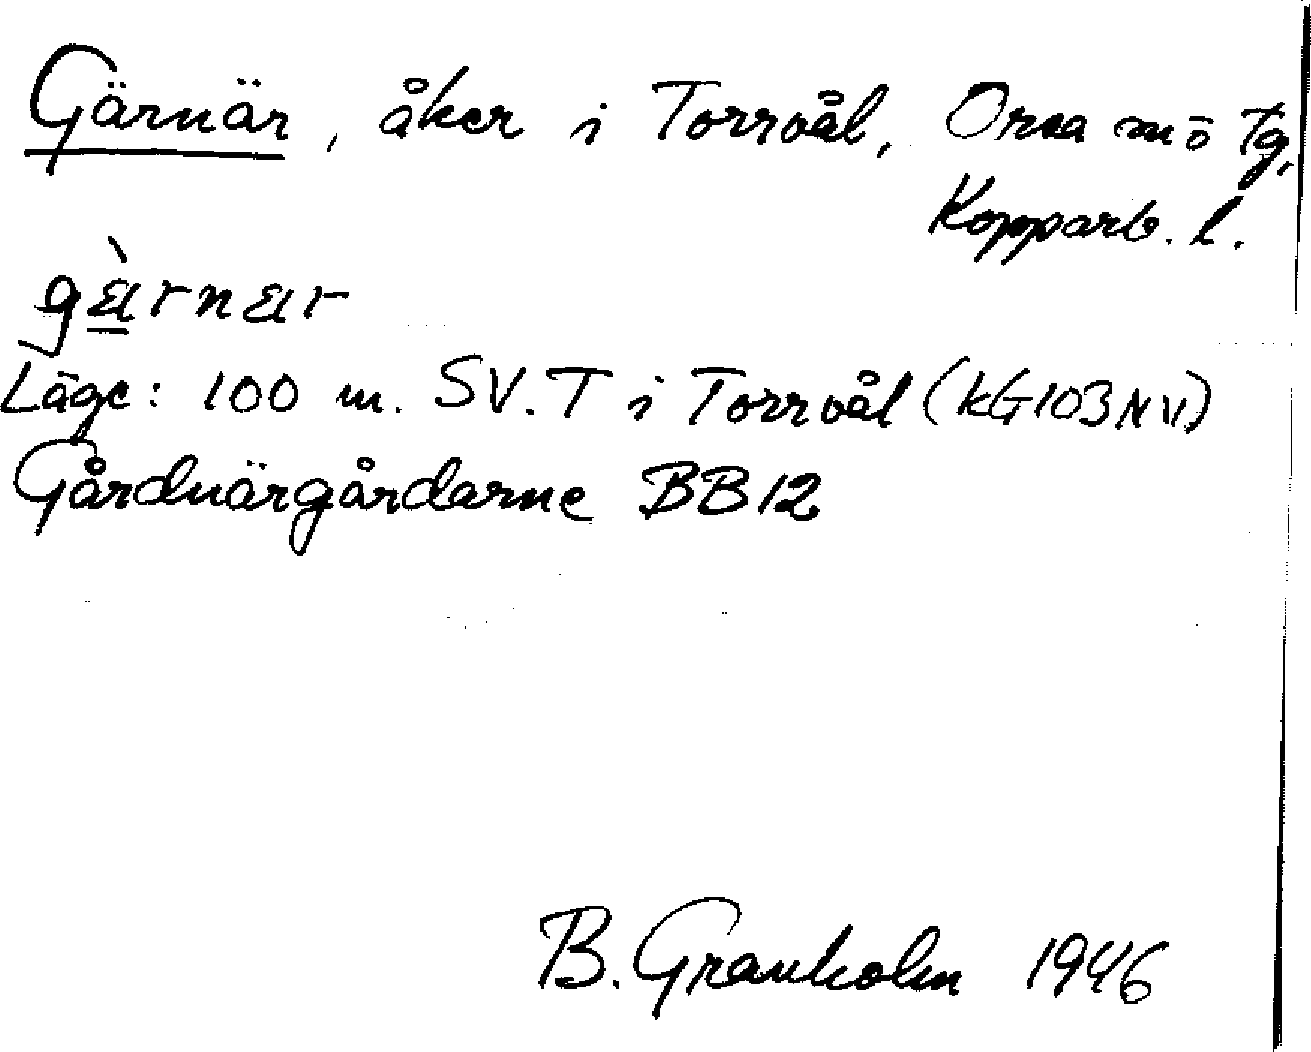 Gärnär, åker i Torrvål, Orsa mō tg,
Kopparb. l.
gàrnar
Läge: 100 m. SV. T i Torrvål (KG103NV)
Gårdnärgårdarne BB12
B. Granholm 1946